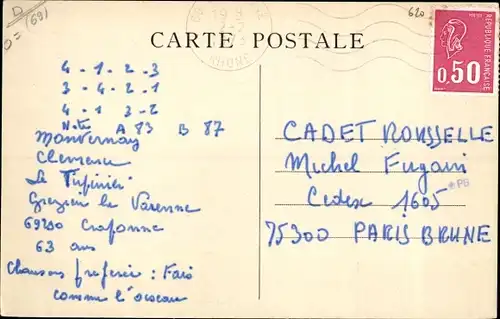 D (69)
O=
620
CARTE POSTALE
REPUBLIQUE FRANCAISE
0,50
4-1-2-3
3-4-2-1
4-1 3-2
Notes A 83 B 87
Montvernay
Clemence
Le
Grezieu la Varenne
69290 Craponne
63 ans
Chanson préférée : Fais
comme l'oiseau
CADET ROUSSELLE
Michel Fugain
Cedex 1605
*PB
75300 PARIS BRUNE